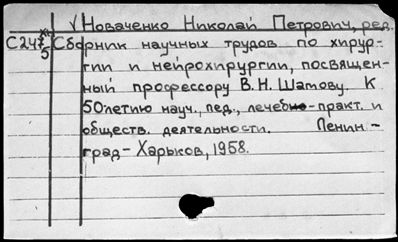 √ Новаченко Николай Петрович, ред.
С247 хк Сборник научных трудов по хирур-
5 гии и нейрохирургии, посвящен-
ный профессору В.Н. Шамову. К
50летию науч., пед., лечебно-практ. и
обществ. деятельности. Ленин-
град-Харьков, 1958.